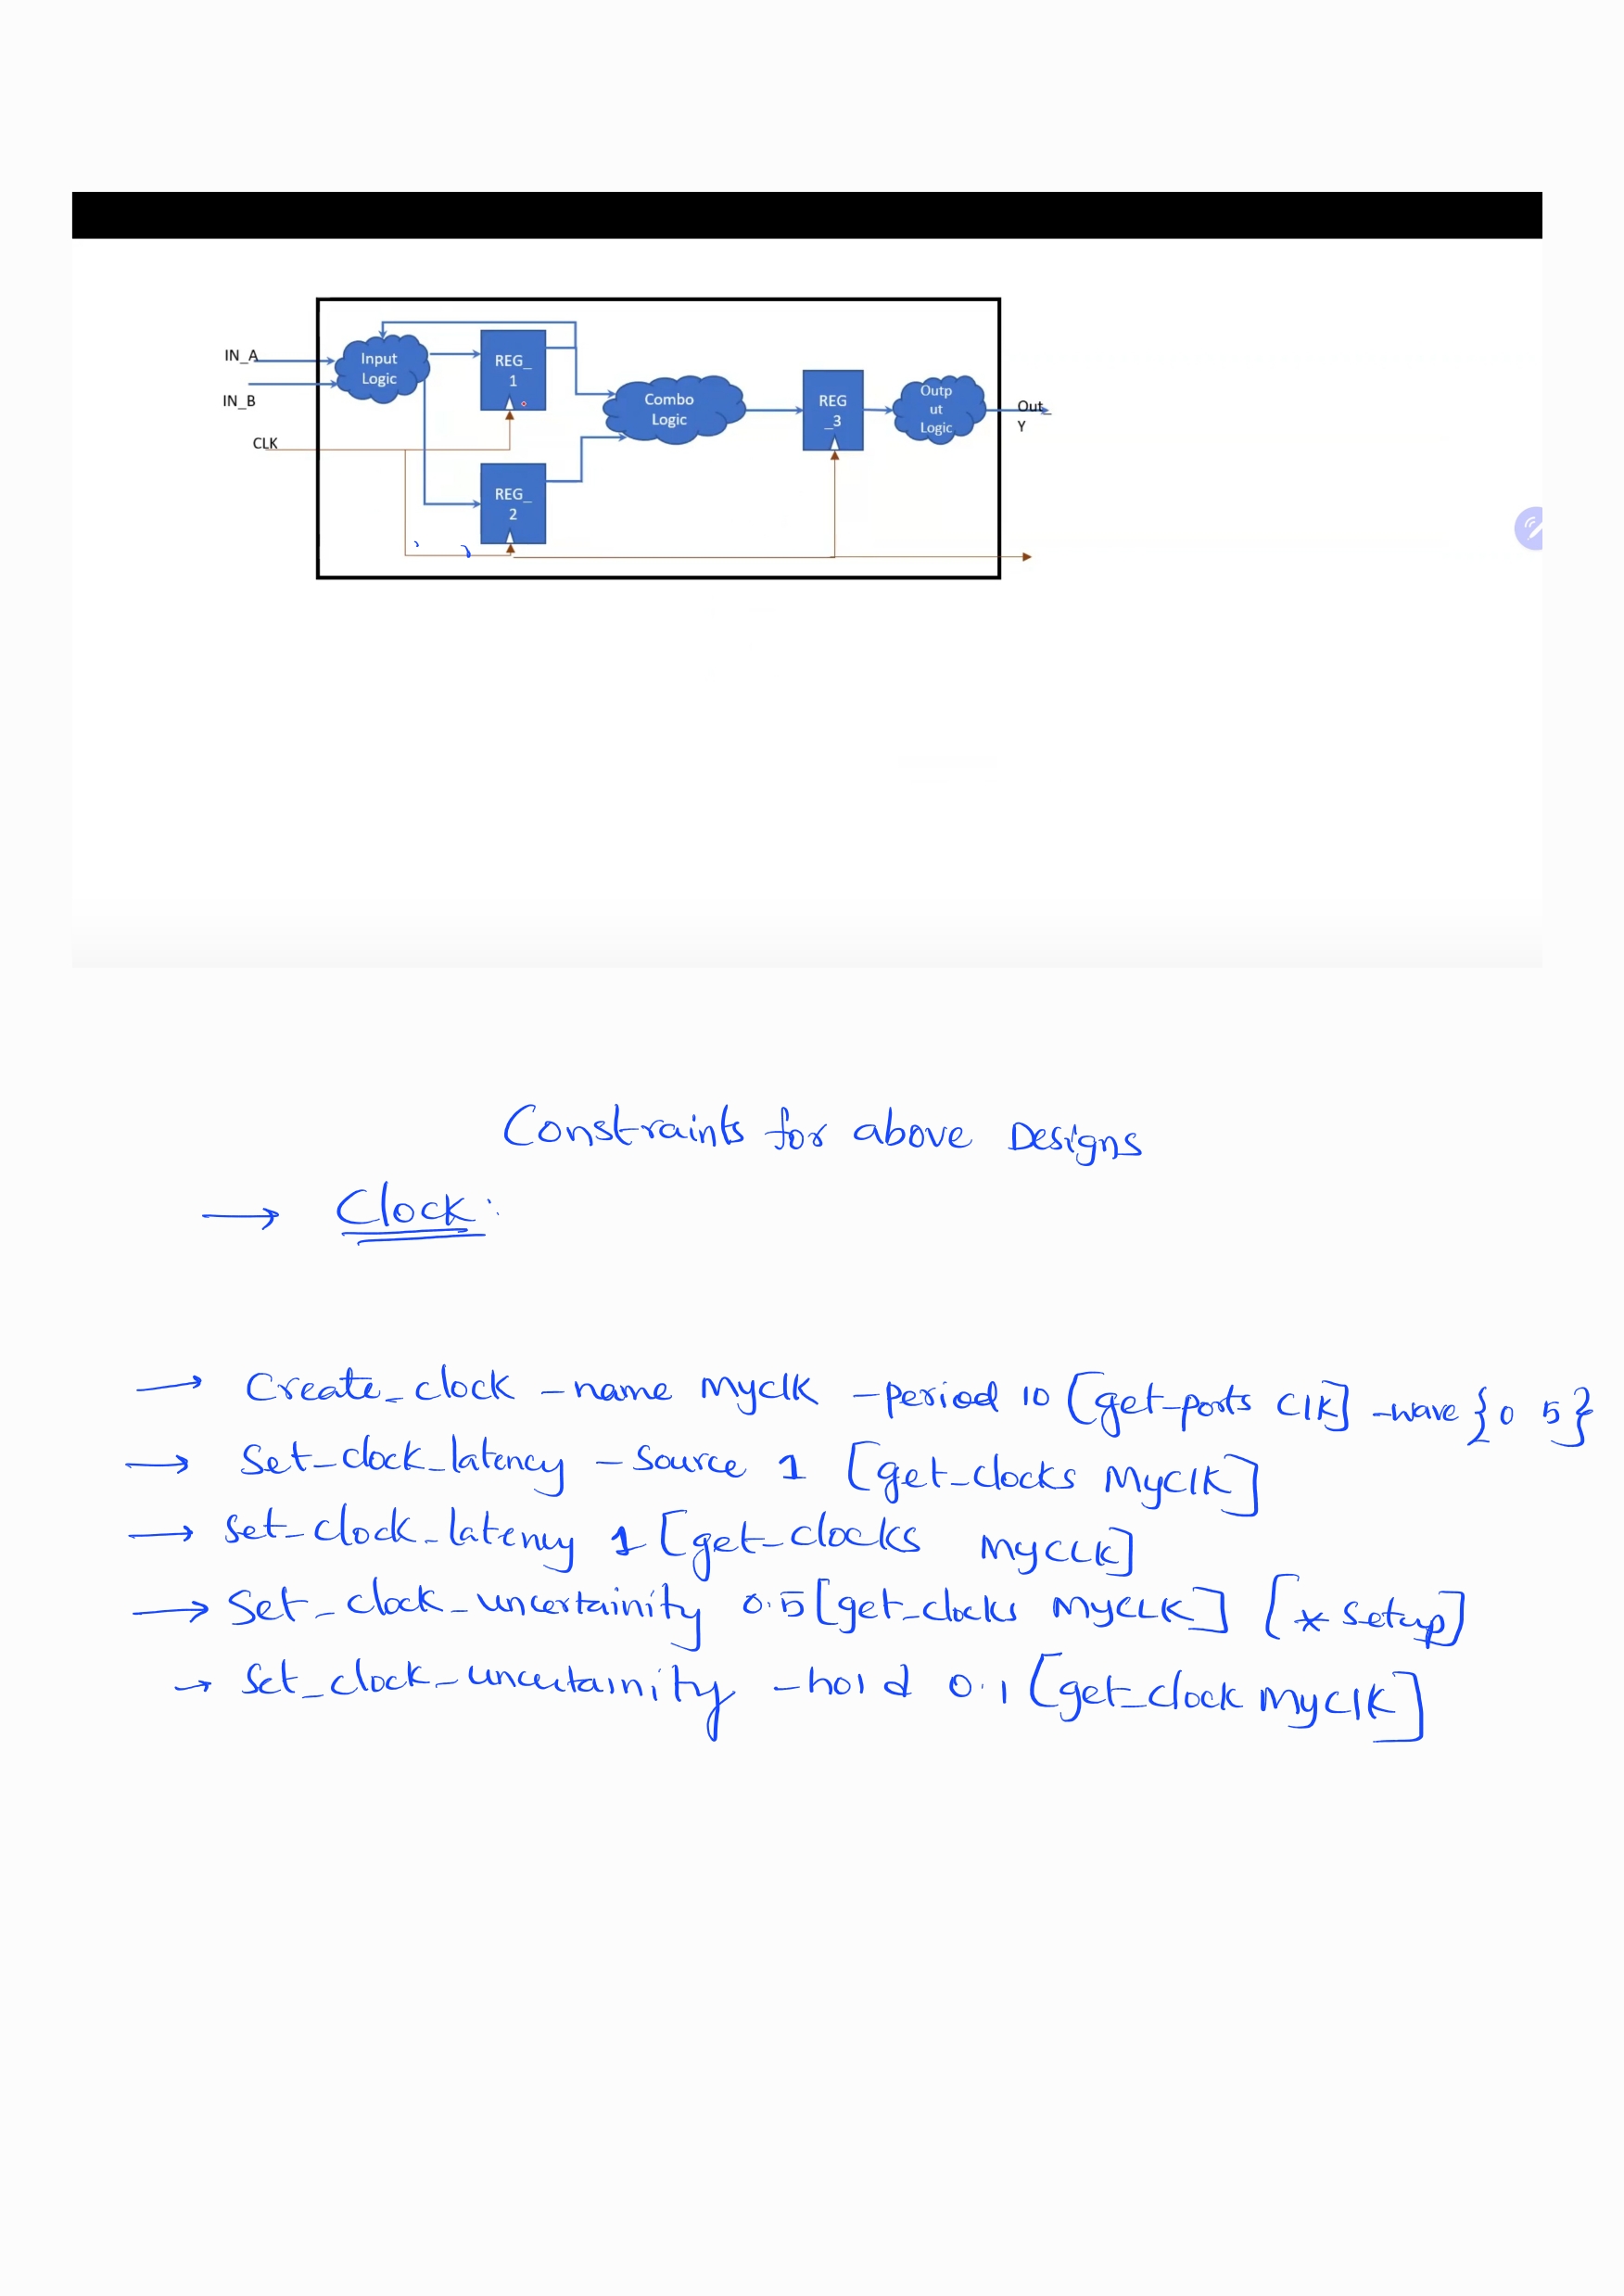 IN_A
IN_B
CLK
Input
Logic
REG_
1
REG_
2
Combo
Logic
REG
_3
Outp
ut
Logic
Out_
Y
Constraints for above Designs
→ Clock:
→ Create_clock -name Myclk -period 10 [get-ports Clk] -wave {0 5}
→ Set_clock_latency - Source 1 [get_clocks MyClK]
→ Set_clock_lateny 1 [get_clocks MyCLK]
→ Set_clock_uncertainity 0.5 [get_clocks MyCLK] [* setup]
→ Set_clock_uncertainity -hold 0.1 [get_clock MyClK]